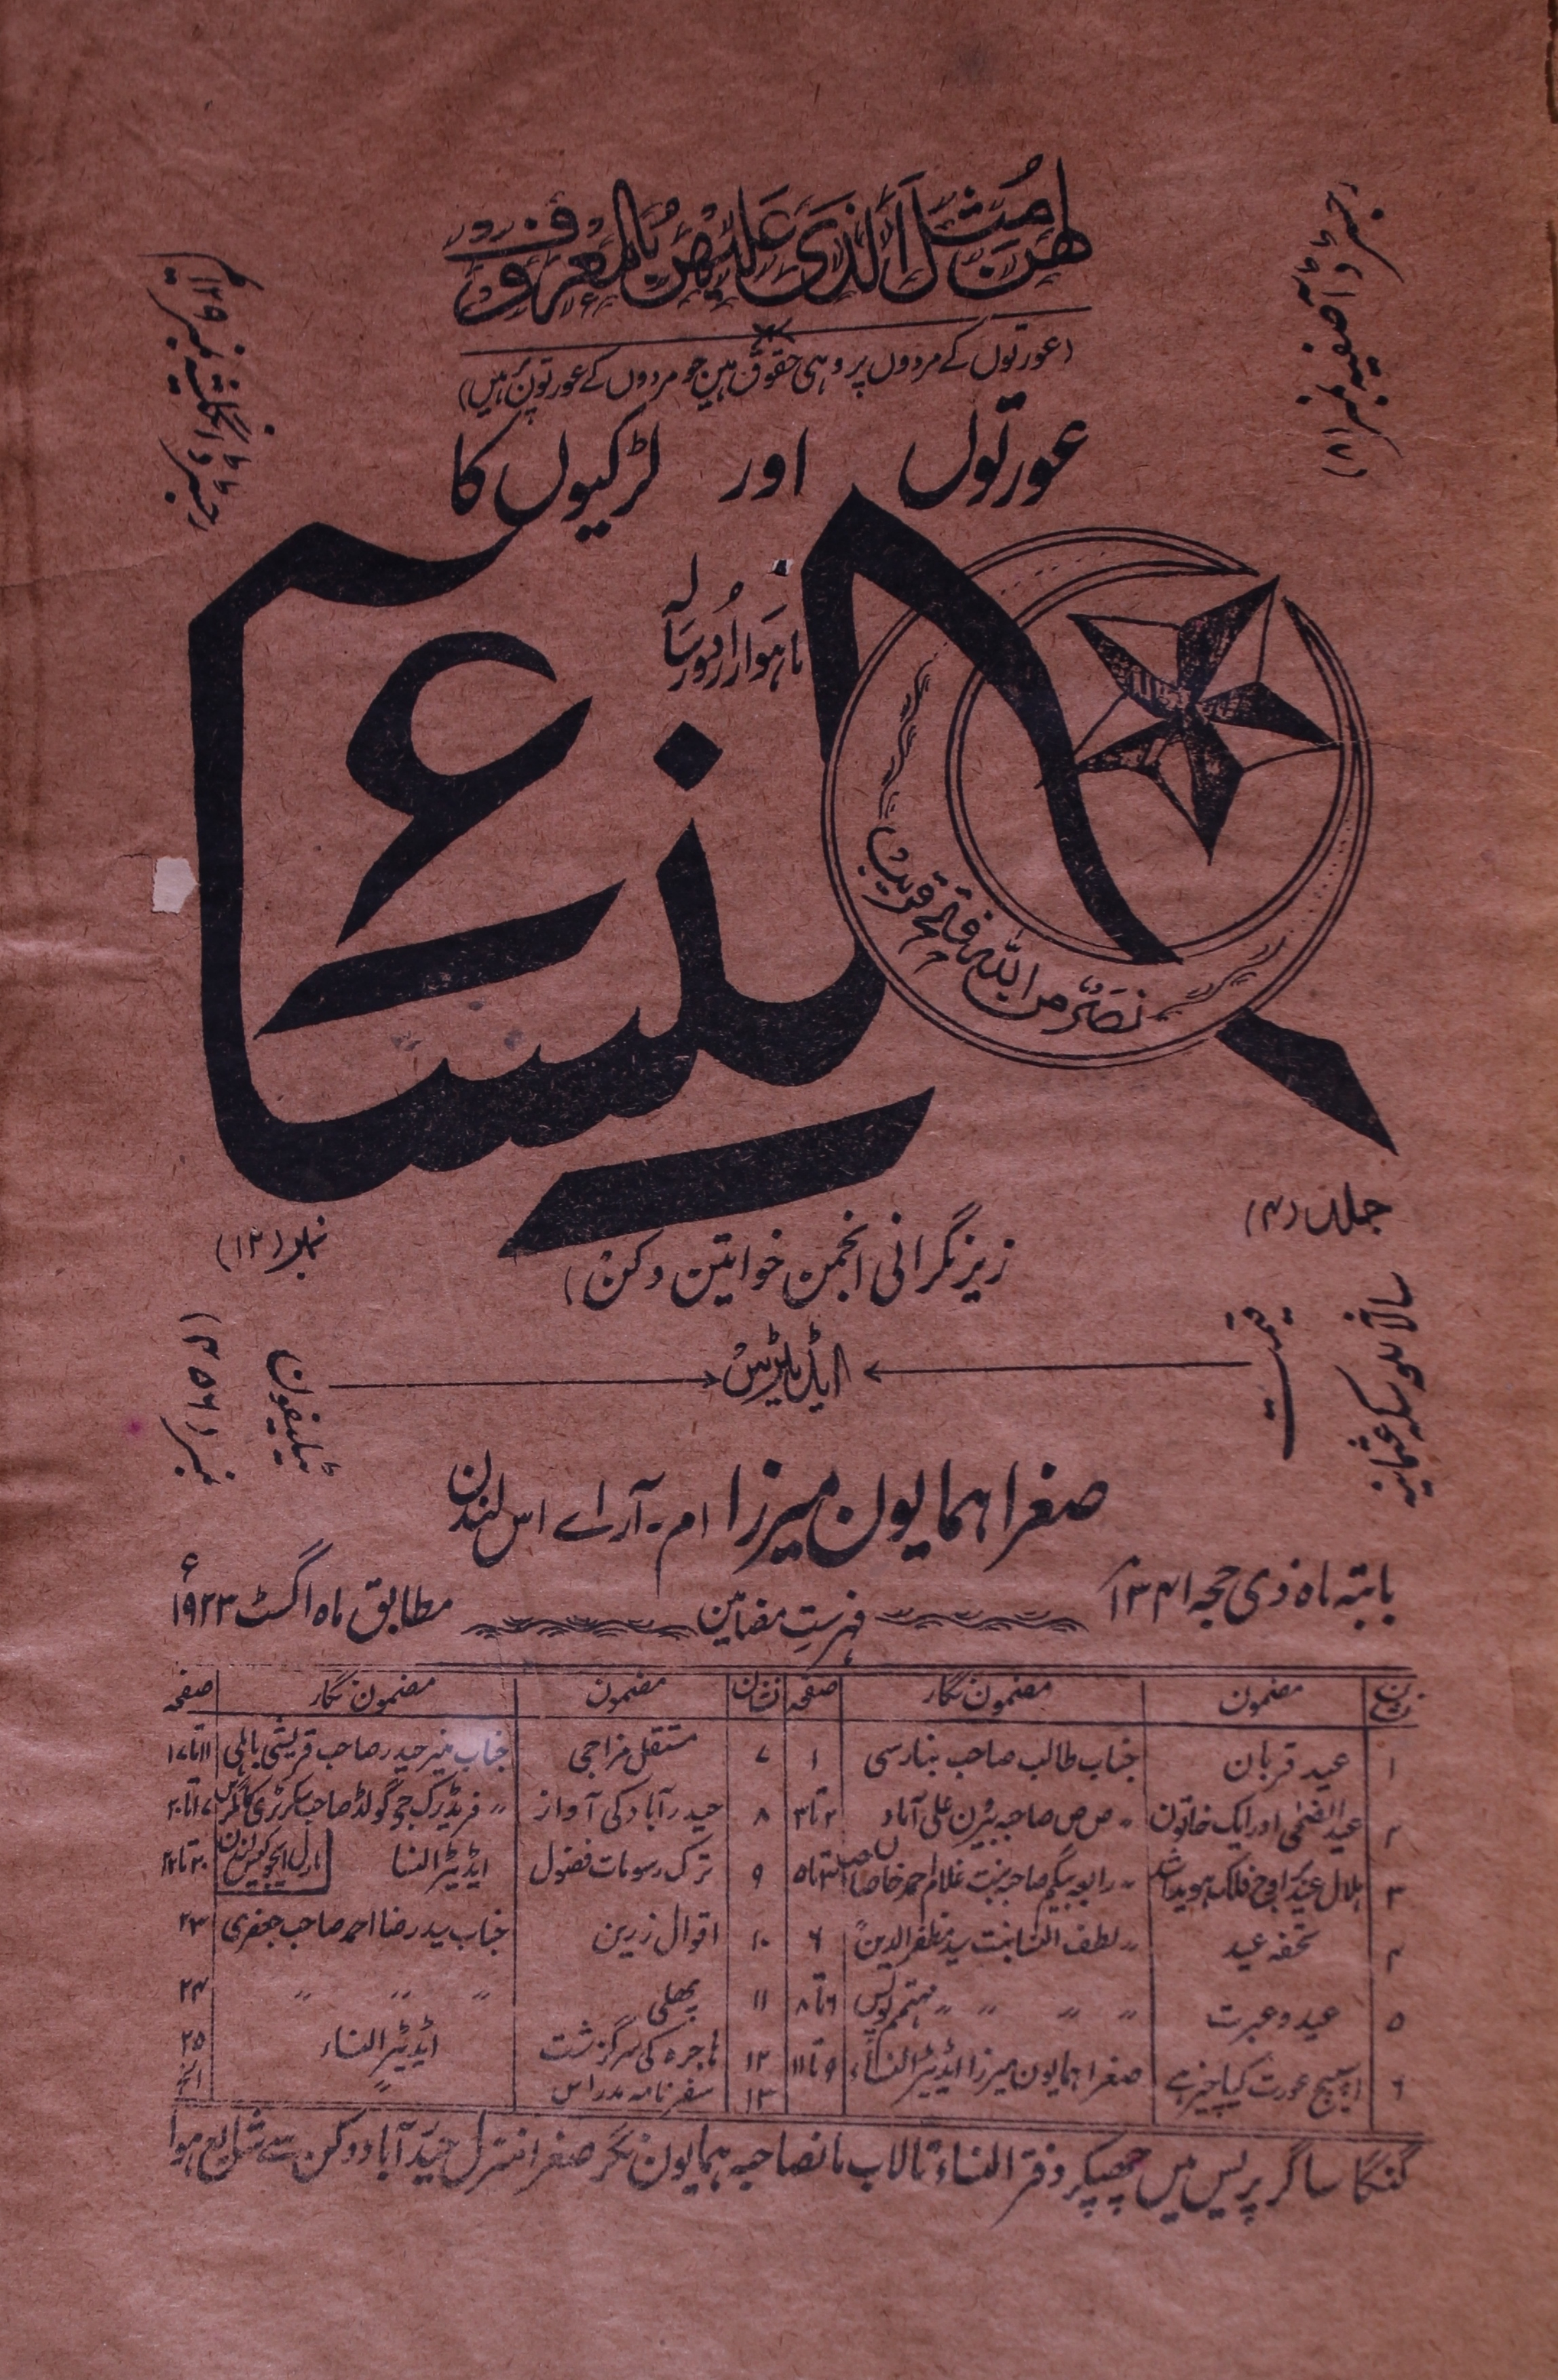 لھن مثل الذی علیھن بالمعروف
(عورتوں کے مردوں پر وہی حقوق ہیں جو مردوں کے عورتوں پر ہیں)
رجسٹرڈ آصفیہ نمبر (۸۱)
عورتوں اور لڑکیوں کا
ماہوار اردو رسالہ
النساء
نصر من اللہ فتح قریب
جلد (۴)
نمبر (۱۲)
زیر نگرانی انجمن خواتین دکن)
قیمت
سالانہ سکہ عثمانیہ
ایڈیٹریس
ٹیلیفون
نمبر
صغرا ہمایون میرزا ام۔ آر اے اس لندن
بابتہ ماہ ذی حجہ ۱۳۴۱
فہرست مضامین
مطابق ماہ اگسٹ ۱۹۲۳ء
نشان مضمون مضمون نگار صفحہ نشان مضمون مضمون نگار صفحہ
۱ عید قربان جناب طالب صاحب بنارسی ۱
۲ عید الضحٰی اور ایک خاتون 〃 ص ص صاحبہ علی آباد ۲ تا ۳
۳ ہلال عید اوج فلک ہویدا 〃 رابعہ بیگم صاحبہ بنت غلام احمد خانصاحب ۳ تا ۵
۴ تحفہ عید 〃 لطف النسا بنت سید مظفر الدین ۶
۵ عید و عبرت 〃 〃 〃 〃 مہتمم پولیس ۶ تا ۸
۶ اسپیچ عورت کیا چیز ہے صغرا ہمایون میرزا ایڈیٹر النساء ۹ تا ۱۱
۷ مستقل مزاجی جناب میر حیدر صاحب قریشی ۱۱ تا ۱۷
۸ حیدرآباد کی آواز 〃 فریڈرک جی گولڈ صاحب سکرٹری ۱۷ تا ۲۰
۹ ترک رسومات فضول ایڈیٹر النسا ۲۰ تا ۲۲
مارل ایجوکیشن لندن
۱۰ اقوال زرین جناب سید رضا احمد صاحب جعفری ۲۳
۱۱ پھلی 〃 〃 〃 ۲۴
۱۲ ہاجرہ کی سرگزشت ایڈیٹر النساء ۲۵
۱۳ سفرنامہ مدراس 〃 الخ
گنگا ساگر پریس میں چھپکر دفتر النساء تالاب مانصاحبہ ہمایون نگر صغرا منزل حیدرآباد دکن سے شایع ہوا